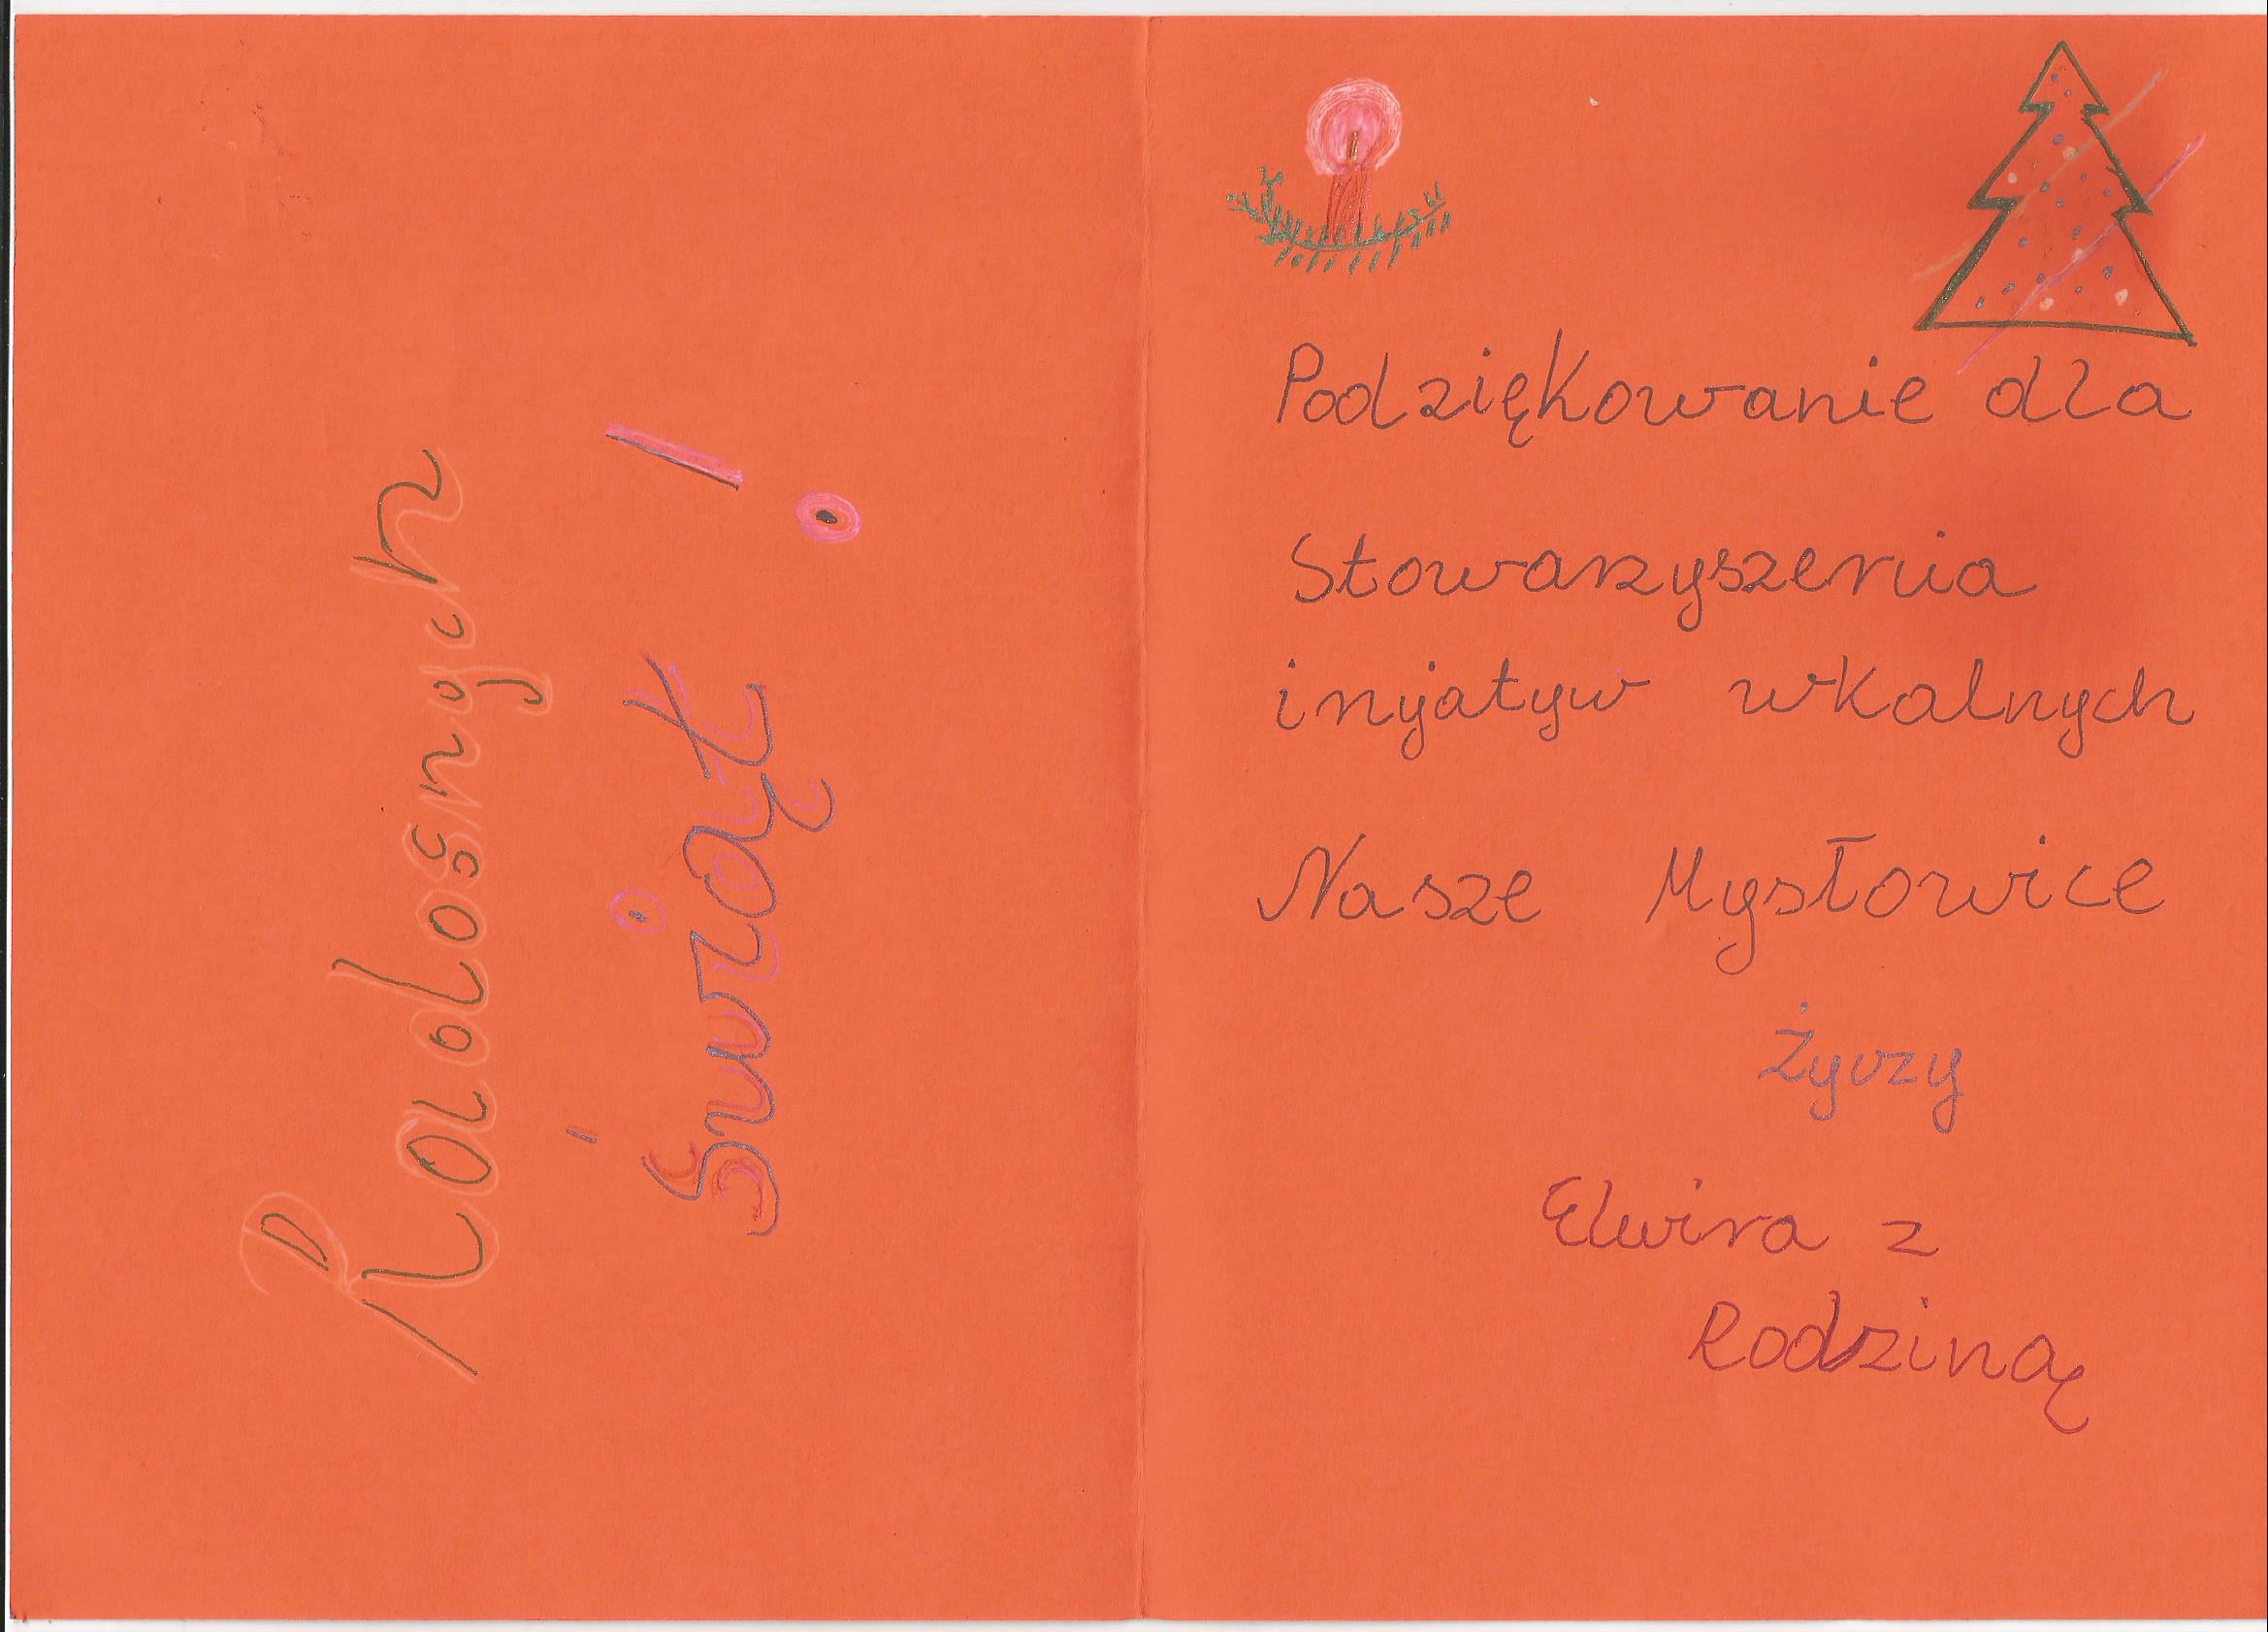 Radosnych
Świąt!
Podziękowanie dla
Stowarzyszenia
inijatyw wkalnych
Nasze Mysłowice
życzy
Elwira z
Rodziną